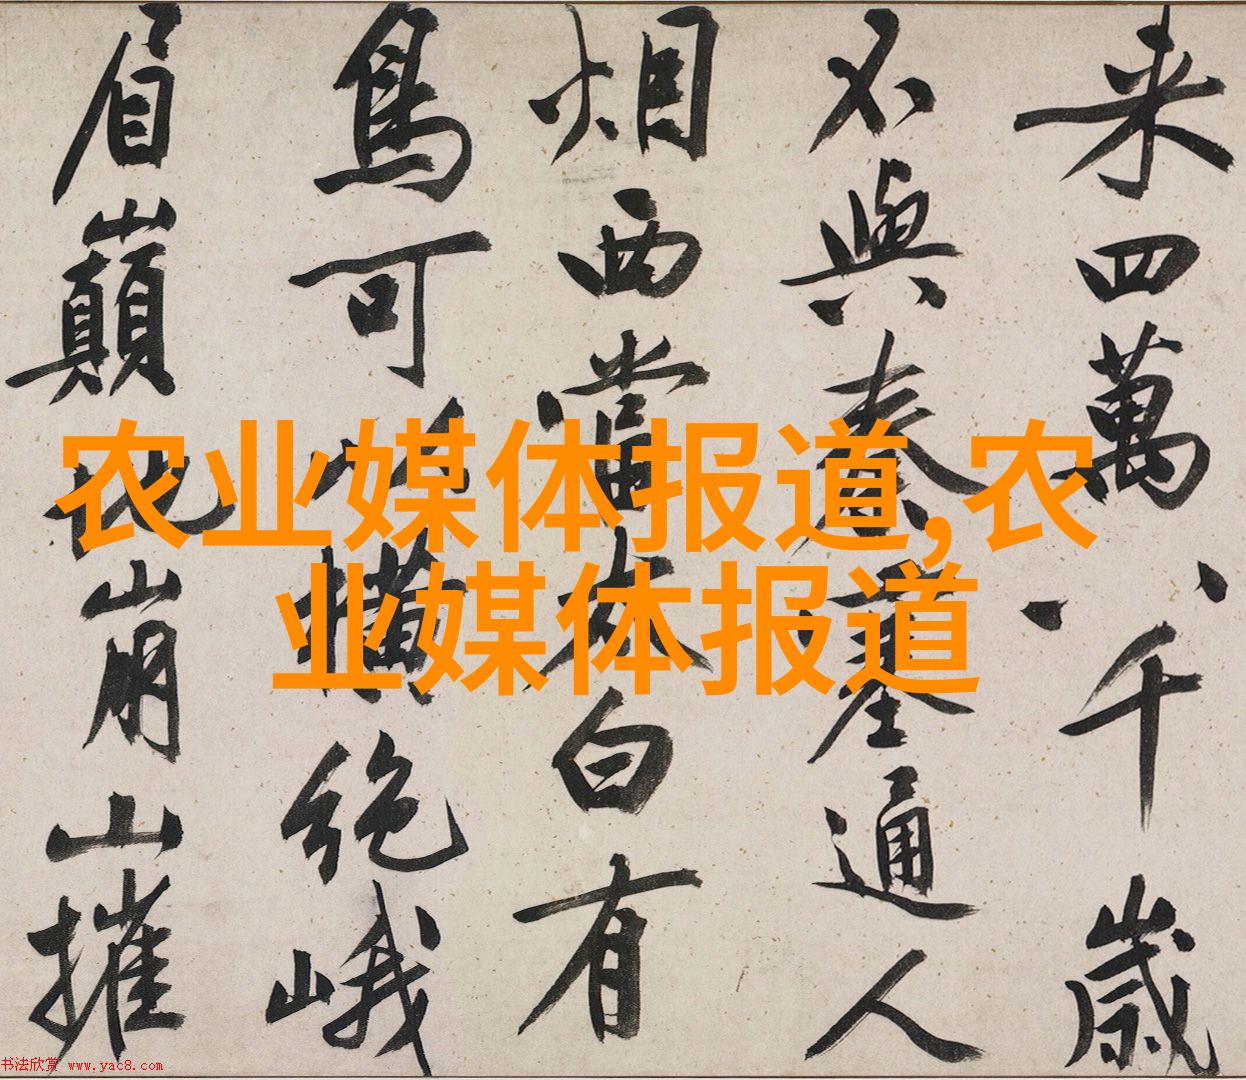 来四萬八千歲
不與秦塞通人
烟西當太白有
鳥可以橫絕峨
眉巔地崩山摧
农业媒体报道,农
业媒体报道
书法欣赏 www.yac8.com